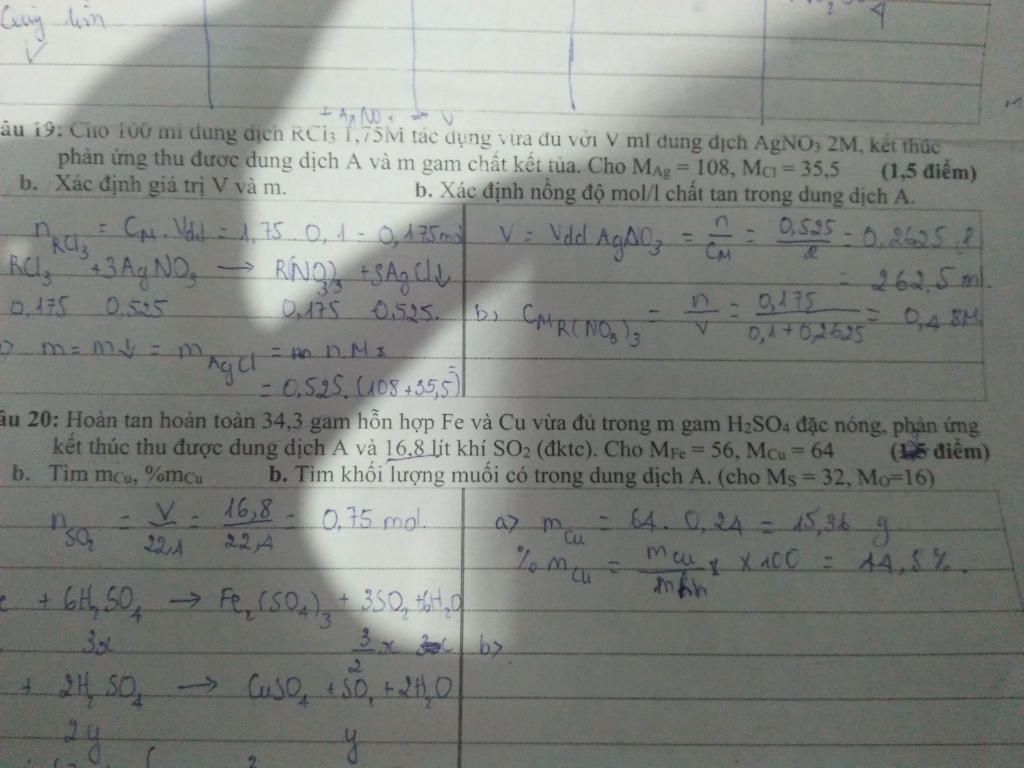 Cung lim
4
+ AgNO3 → V
âu 19: Cho 100 ml dung dịch RCl3 1,75M tác dụng vừa đủ với V ml dung dịch AgNO3 2M, kết thúc
phản ứng thu được dung dịch A và m gam chất kết tủa. Cho MAg = 108, MCl = 35,5 (1,5 điểm)
b. Xác định giá trị V và m. b. Xác định nồng độ mol/l chất tan trong dung dịch A.
nRCl3 = CM.Vdd = 1,75.0,1 = 0,175mol
RCl3 + 3AgNO3 → R(NO3)3 + 3AgCl↓
0,175 0,525 0,175 0,525.
> m = m↓ = mAgCl = n.M
= 0,525.(108+35,5)
V = Vdd AgNO3 = n/CM = 0,525/2 = 0,2625 l
= 262,5 ml.
b, CM R(NO3)3 = n/V = 0,175/0,1+0,2625 = 0,48M
âu 20: Hoàn tan hoàn toàn 34,3 gam hỗn hợp Fe và Cu vừa đủ trong m gam H2SO4 đặc nóng, phản ứng
kết thúc thu được dung dịch A và 16.8 lít khí SO2 (đktc). Cho MFe = 56, MCu = 64 (1,5 điểm)
b. Tìm mCu, %mCu b. Tìm khối lượng muối có trong dung dịch A. (cho MS = 32, MO=16)
nSO2 = V/22,4 = 16,8/22,4 = 0,75 mol
e + 6H2SO4 → Fe2(SO4)3 + 3SO2 + 6H2O
3x 3/2 x
+ 2H2SO4 → CuSO4 + SO2 + 2H2O
2y y
a> mCu = 64.0,24 = 15,36 g
%mCu = mCu/mhh × 100 = 44,8%.
b>